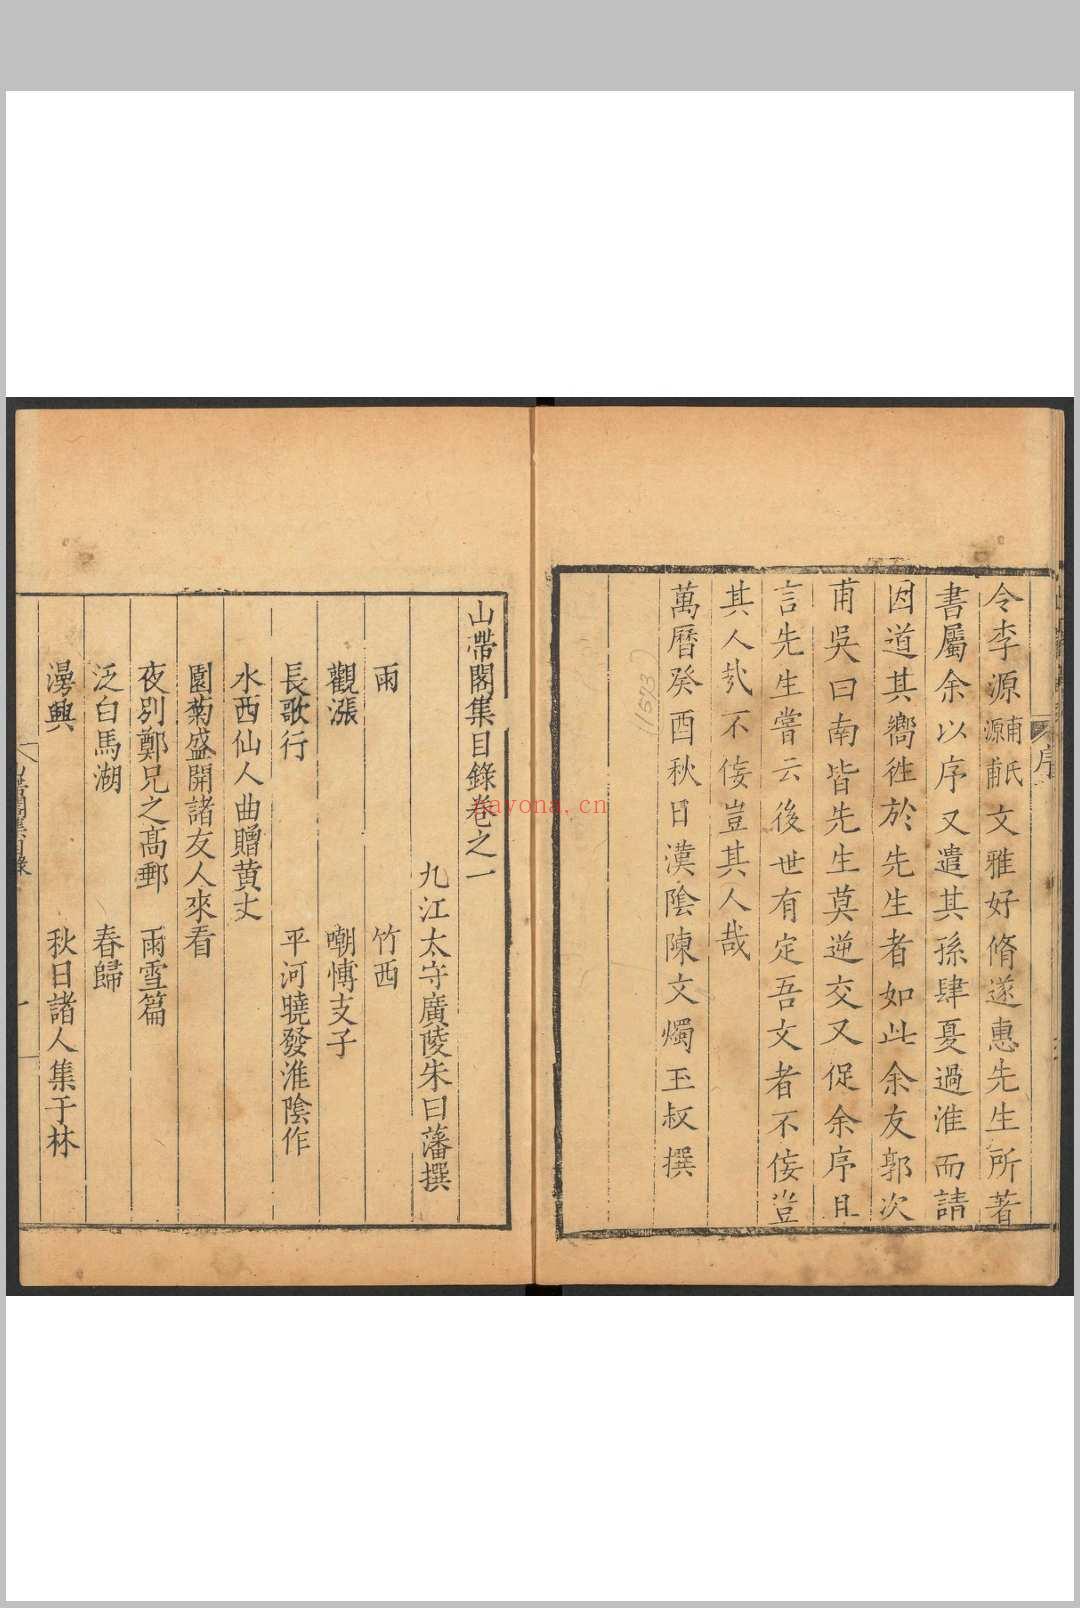 令李源甫氏源甫文雅好脩遂惠先生所著
書屬余以序又遣其孫肆夏過淮而請
因道其嚮徃於先生者如此余友郭次
甫吳曰南皆先生莫逆交又促余序且
言先生嘗云後世有定吾文者不佞豈
其人㦲不佞豈其人哉
萬曆癸酉秋日漢陰陳文燭玉叔撰
(1573)
序
山帶閣集目錄卷之一
九江太守廣陵朱曰藩撰
雨 竹西
觀漲 嘲愽支子
長歌行 平河曉發淮陰作
水西仙人曲贈黄丈
園菊盛開諸友人來看
夜別鄭兄之高郵 雨雪篇
泛白馬湖 春歸
漫興 秋日諸人集于林
nayona.cn